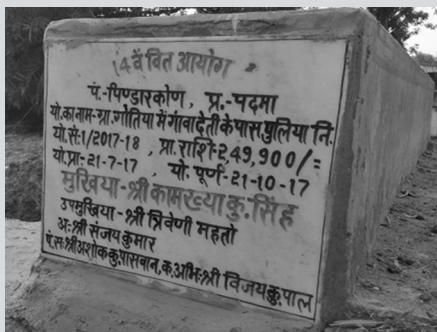 14 वें वित आयोग
पं.-पिण्डारकोण, प्र.-पदमा
यो.का नाम-ग्रा.गोतिया में गांवादेती के पास पुलिया नि.
यो.सं:1/2017-18, प्रा.राशि-2,49,900/=
यो.प्रा-21-7-17, यो. पूर्ण-21-10-17
मुखिया-श्री कामख्या कु. सिंह
उपमुखिया-श्री त्रिवेणी महतो
अ:-श्री संजय कुमार
पं.स:श्री अशोक कु.पासवान, क.अभि-श्री विजय कु.पाल